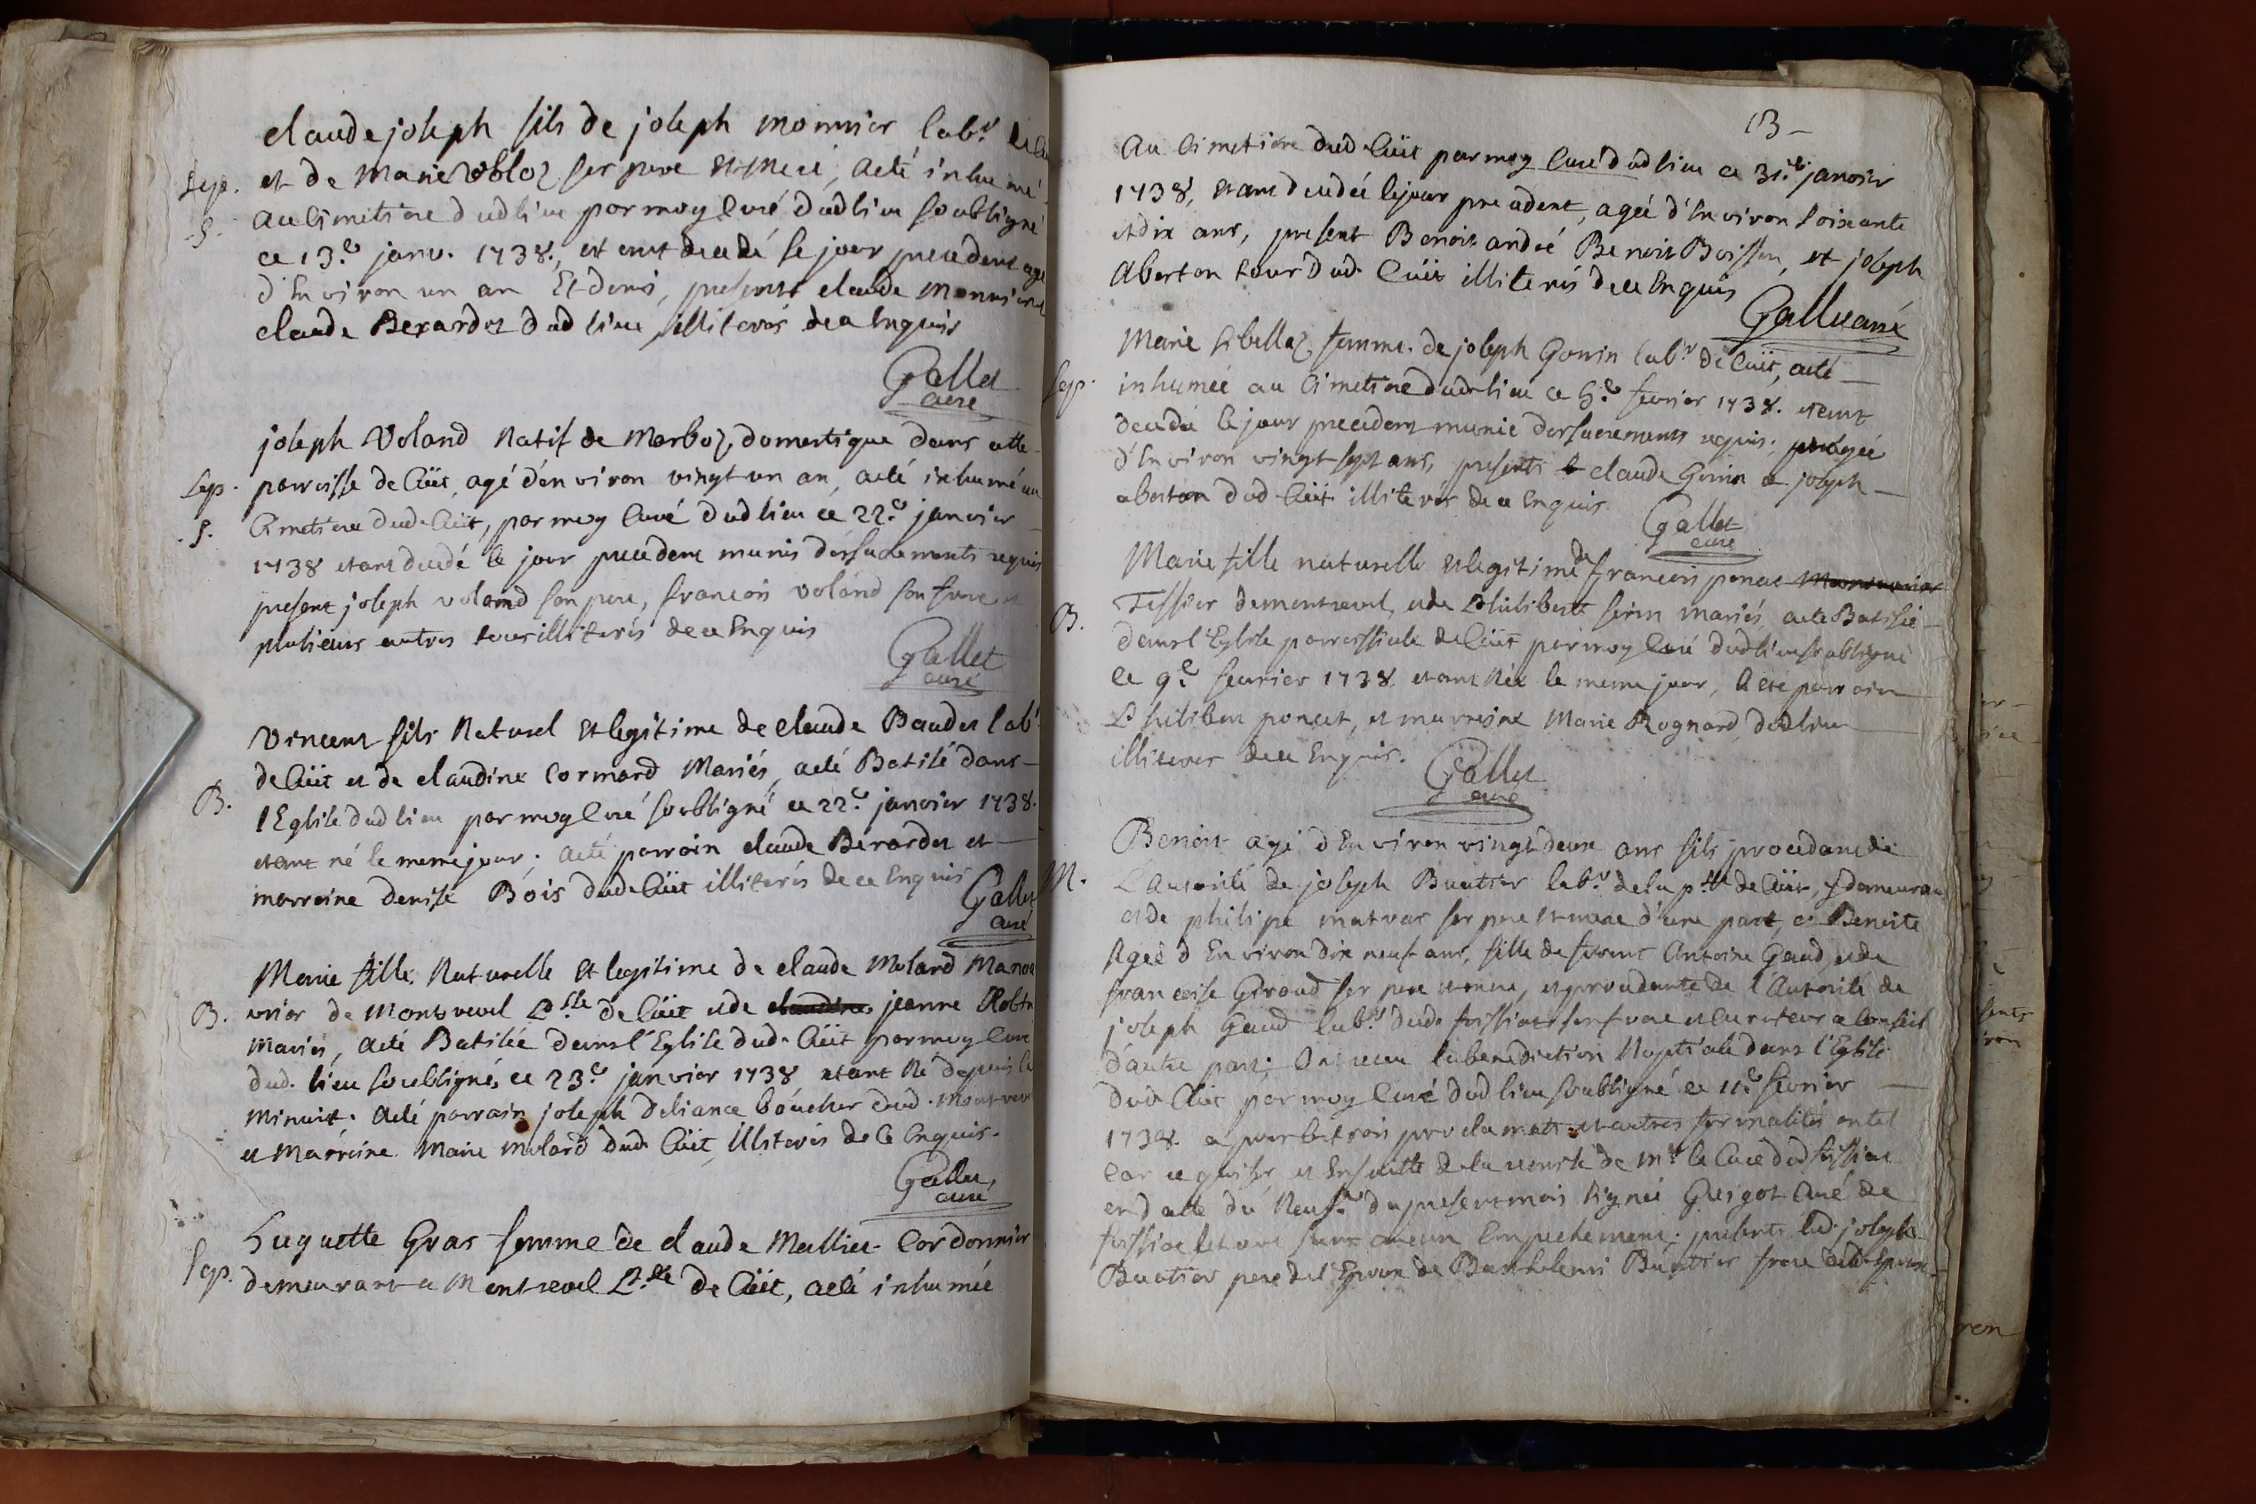 claude joseph fils de joseph monnier lab.r
Sep. et de Marie ses pere et mere, a eté inhumé
.S. au cimetiere dud lieu par moy curé dud lieu soubsigné
ce 13.e janv. 1738., etant decedé le jour precedent agé
d'Environ un an Et demi, presents claude monnier
claude Berardet dud lieu, illiterés de ce Enquis
Gallet
curé
joseph Voland Natif de Marboz, domestique dans cette
Sep. parroisse de Cüet, agé d'environ vingt un an, a eté inhumé au
.S. Cimetiere dud. Cüet, par moy Curé dud lieu ce 22.e janvier
1738 etant decedé le jour precedent munis des sacrements requis
present joseph voland son pere, francois voland son frere et
plusieurs autres tous illiterés de ce Enquis
Gallet
curé
Vincent fils Naturel et legitime de claude Baudet lab.r
de Cüet et de claudine Cormard Mariés, a eté Batisé dans
B. l'Eglise dud lieu par moy Curé soubsigné ce 22.e janvier 1738.
etant né le meme jour; a eté parrain claude Berardet et
marraine denise Bois dud. Cüet illiterés de ce Enquis
Gallet
curé
Marie fille Naturelle et legitime de claude Molard Manou
B. vrier de Montrevel P.sse de Cüet et de jeanne Robin
Mariés, a eté Batisée dans l'Eglise dud. Cüet par moy Curé
dud. lieu soubsigné, ce 23.e janvier 1738 etant Né depuis le
minuit. a eté parrain joseph deliance boucher dud. Montrevel
et Marraine Marie molard dud Cüet, illiterés de Ce Enquis.
Gallet,
curé
Huguette Gras femme de claude Mallet Cordonnier
Sep. demeurant a Montrevel P.sse de Cüet, a eté inhumée
13 -
au Cimetiere dud. Cüet par moy Curé dud lieu ce 31.e janvier
1738, etant decedée le jour precedent, agée d'Environ soixante
et dix ans, present Benoit andré Benoit Boisson, et joseph
Aberton tous dud. Cüet illiterés de ce Enquis
Gallet curé
Marie sibellaz femme de joseph Gonin lab.r de Cüet, a eté
Sep. inhumée au Cimetiere dud. lieu ce 5.e fevrier 1738. etant
decedée le jour precedent munie des sacrements requis; agée
d'Environ vingt sept ans, presents claude Gonin et joseph
aberton dud Cüet illiterés de ce Enquis
Gallet
curé
Marie fille naturelle et legitime de francois poncet
B. Tissier de montrevel, et de Philiberte serin mariés, a eté Batisée
dans l'Eglise parroissiale de Cüet par moy Curé dud lieu soubsigné
ce 9.e fevrier 1738 etant Née le meme jour, a eté parrain
Philibert poncet, et marraine Marie Rognard, dud lieu
illiterés de ce Enquis.
Gallet
curé
Benoit agé d'Environ vingt deux ans fils procedant de
M. L'autorité de joseph Buatier lab.r de la p.sse de Cüet, y demeurant
et de philipe ses pere et mere d'une part, et Benoite
Agée d'Environ dix neuf ans, fille de Antoine Gaud, et de
francoise Giroud ses pere et mere, et procedante de l'Autorité de
joseph Gaud lab.r dud. foissiat son frere et Curateur a Conseil
d'autre part; ont receu la benediction Nuptiale dans l'Eglise
dud. Cüet par moy Curé dud lieu soubsigné ce 11.e fevrier
1738. apres les trois proclamat. et autres formalités en tel
Cas requises et Ensuitte de la remise de M.r le Curé dud foissiat
en datte du Neuf.e du present mois signée Guigot Curé de
foissiat et sans aucun Empechement; presents led. joseph
Buatier pere de l'Epoux de Barthelemi Buatier frere dud. Epoux